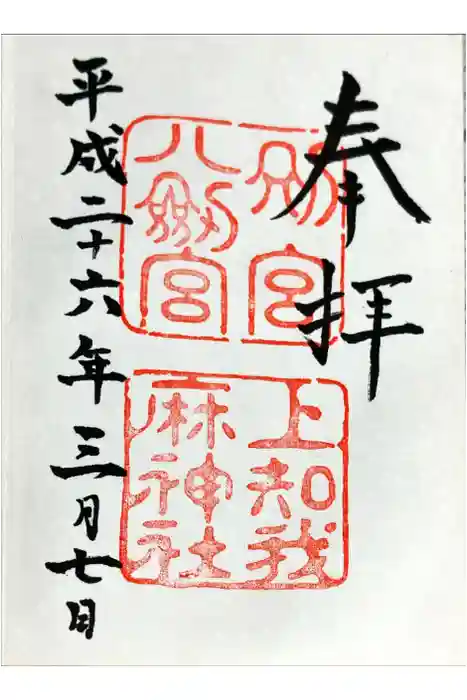 奉拝
別宮
八劍宮
上知我
麻神社
平成二十六年三月七日